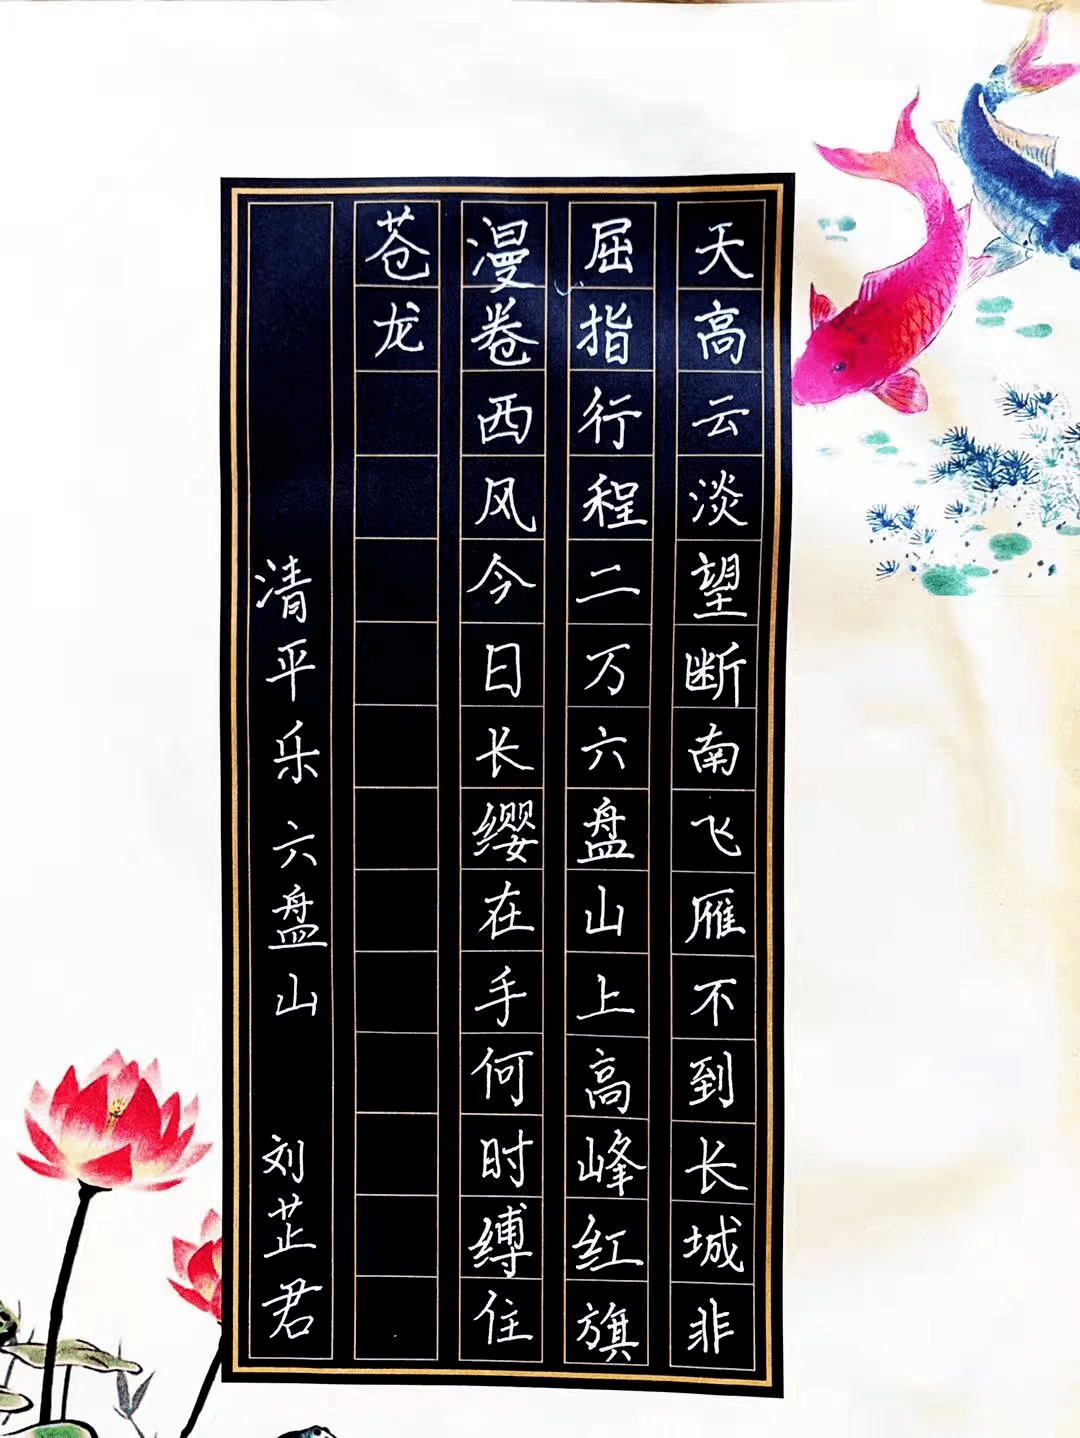 天高云淡望断南飞雁不到长城非
屈指行程二万六盘山上高峰红旗
漫卷西风今日长缨在手何时缚住
苍龙
清平乐六盘山 刘芷君